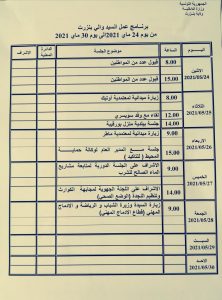 الجمهورية التونسية
وزارة الداخلية
ولاية بنزرت
برنامج عمل السيد والي بنزرت
من يوم 24 ماي 2021 إلى يوم 30 ماي 2021
اليـــوم الساعة موضوع الجلسة الإشراف
الاثنين 2021/05/24
8.00 قبول عدد من المواطنين
15.00 قبول عدد من المواطنين
الثلاثاء 2021/05/25
8.00 زيارة ميدانية لمعتمدية أوتيك
12.00 لقاء مع وفد سويسري
14.00 جلسة ببلدية منزل بورقيبة
الاربعاء 2021/05/26
9.00 زيارة ميدانية لمعتمدية ماطر
15.00 جلسة مع المدير العام لوكالة حماية المحيط ( للتأكيد )
الخميس 2021/05/27
9.00 الاشراف على الجلسة الدورية لمتابعة مشاريع الماء الصالح للشرب
14.00 الاشراف على اللجنة الجهوية لمجابهة الكوارث وتنظيم النجدة (الوضع الصحي)
الجمعة 2021/05/28
9.00 زيارة السيدة وزيرة الشباب و الرياضة و الادماج المهني (قطاع الادماج المهني)
السبت 2021/05/29
الاحد 2021/05/30